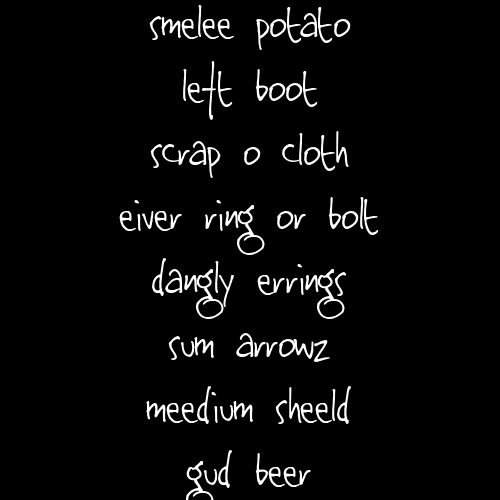 smelee potato
left boot
scrap o cloth
eiver ring or bolt
dangly errings
sum arrowz
meedium sheeld
gud beer